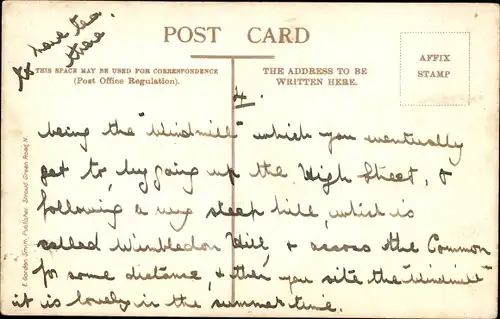 to have tea
there
POST CARD
THIS SPACE MAY BE USED FOR CORRESPONDENCE
(Post Office Regulation).
THE ADDRESS TO BE
WRITTEN HERE.
AFFIX
STAMP
4.
being the "Windmill" which you eventually
get to, by going up the High Street, &
following a very steep hill, which is
called Wimbledon Hill, & across the Common
for some distance, & then you site the "Windmill"
it is lovely in the summer time.
E. Gordon Smith, Publisher, Stroud Green Road, N.